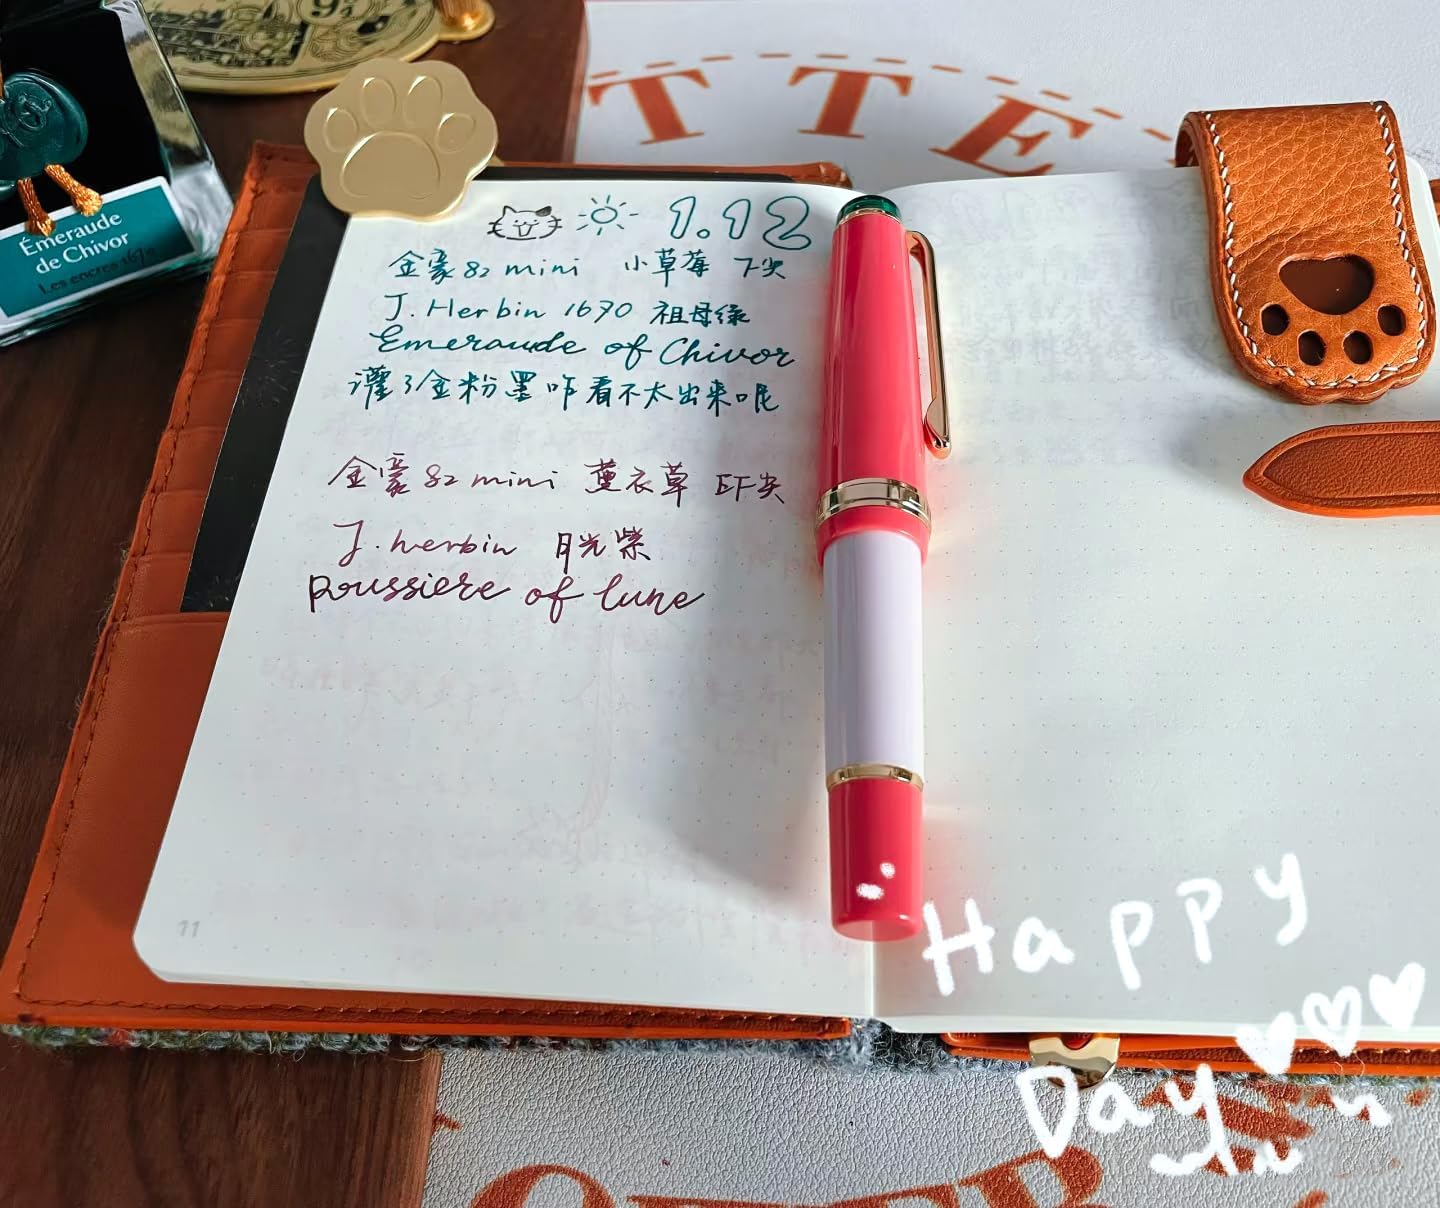 9¾
TTE
Émeraude
de Chivor
Les encres 1670
1.12
金豪82 mini 小草莓 F尖
J. Herbin 1670 祖母绿
Emeraude of Chivor
灌了金粉墨咋看不太出来呢
金豪82 mini 薰衣草 EF尖
J. herbin 月光紫
Poussiere of lune
11
Happy
Day